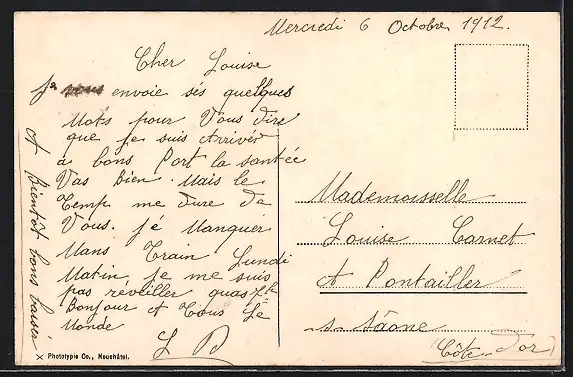 Mercredi 6 Octobre 1912.
Cher Louise
Je vous envoie sés quelques
Mots pour Vous dire
que je suis Arriver
a bons Port la santée
Vas Bien. Mais le
Temp me dure de
Vous. jé Manquer
Mans Train Lundi
Matin je me suis
pas réveiller quas 7h
Bonjour A Tous Le
Monde
L B
A Bientôt bons baiser
X Phototypie Co., Neuchâtel.
Mademoisselle
Louise Cornet
A Pontailler
s-sâone
Côte-d'or